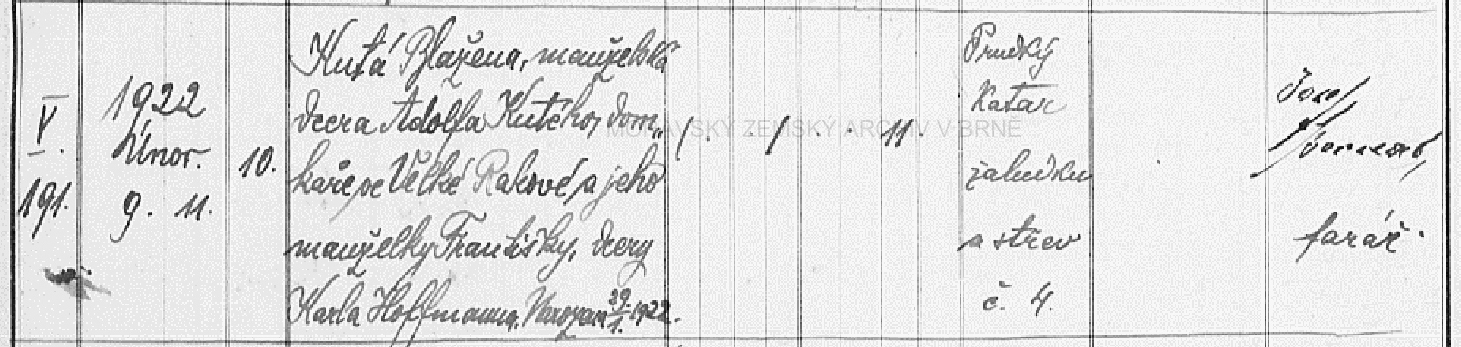 V.
191.
1922
Únor.
9. 11.
10.
Kutá Blažena, manželská
dcera Adolfa Kutého, dom„
kaře ve Velké Rakové, a jeho
manželky Františky, dcery
Karla Hoffmanna. Narozena 29/1. 1922.
/. / . . . 11.
Prudký
Katar
žaludku
a střev
č. 4.
Josef
farář.
MORAVSKÝ ZEMSKÝ ARCHIV V BRNĚ